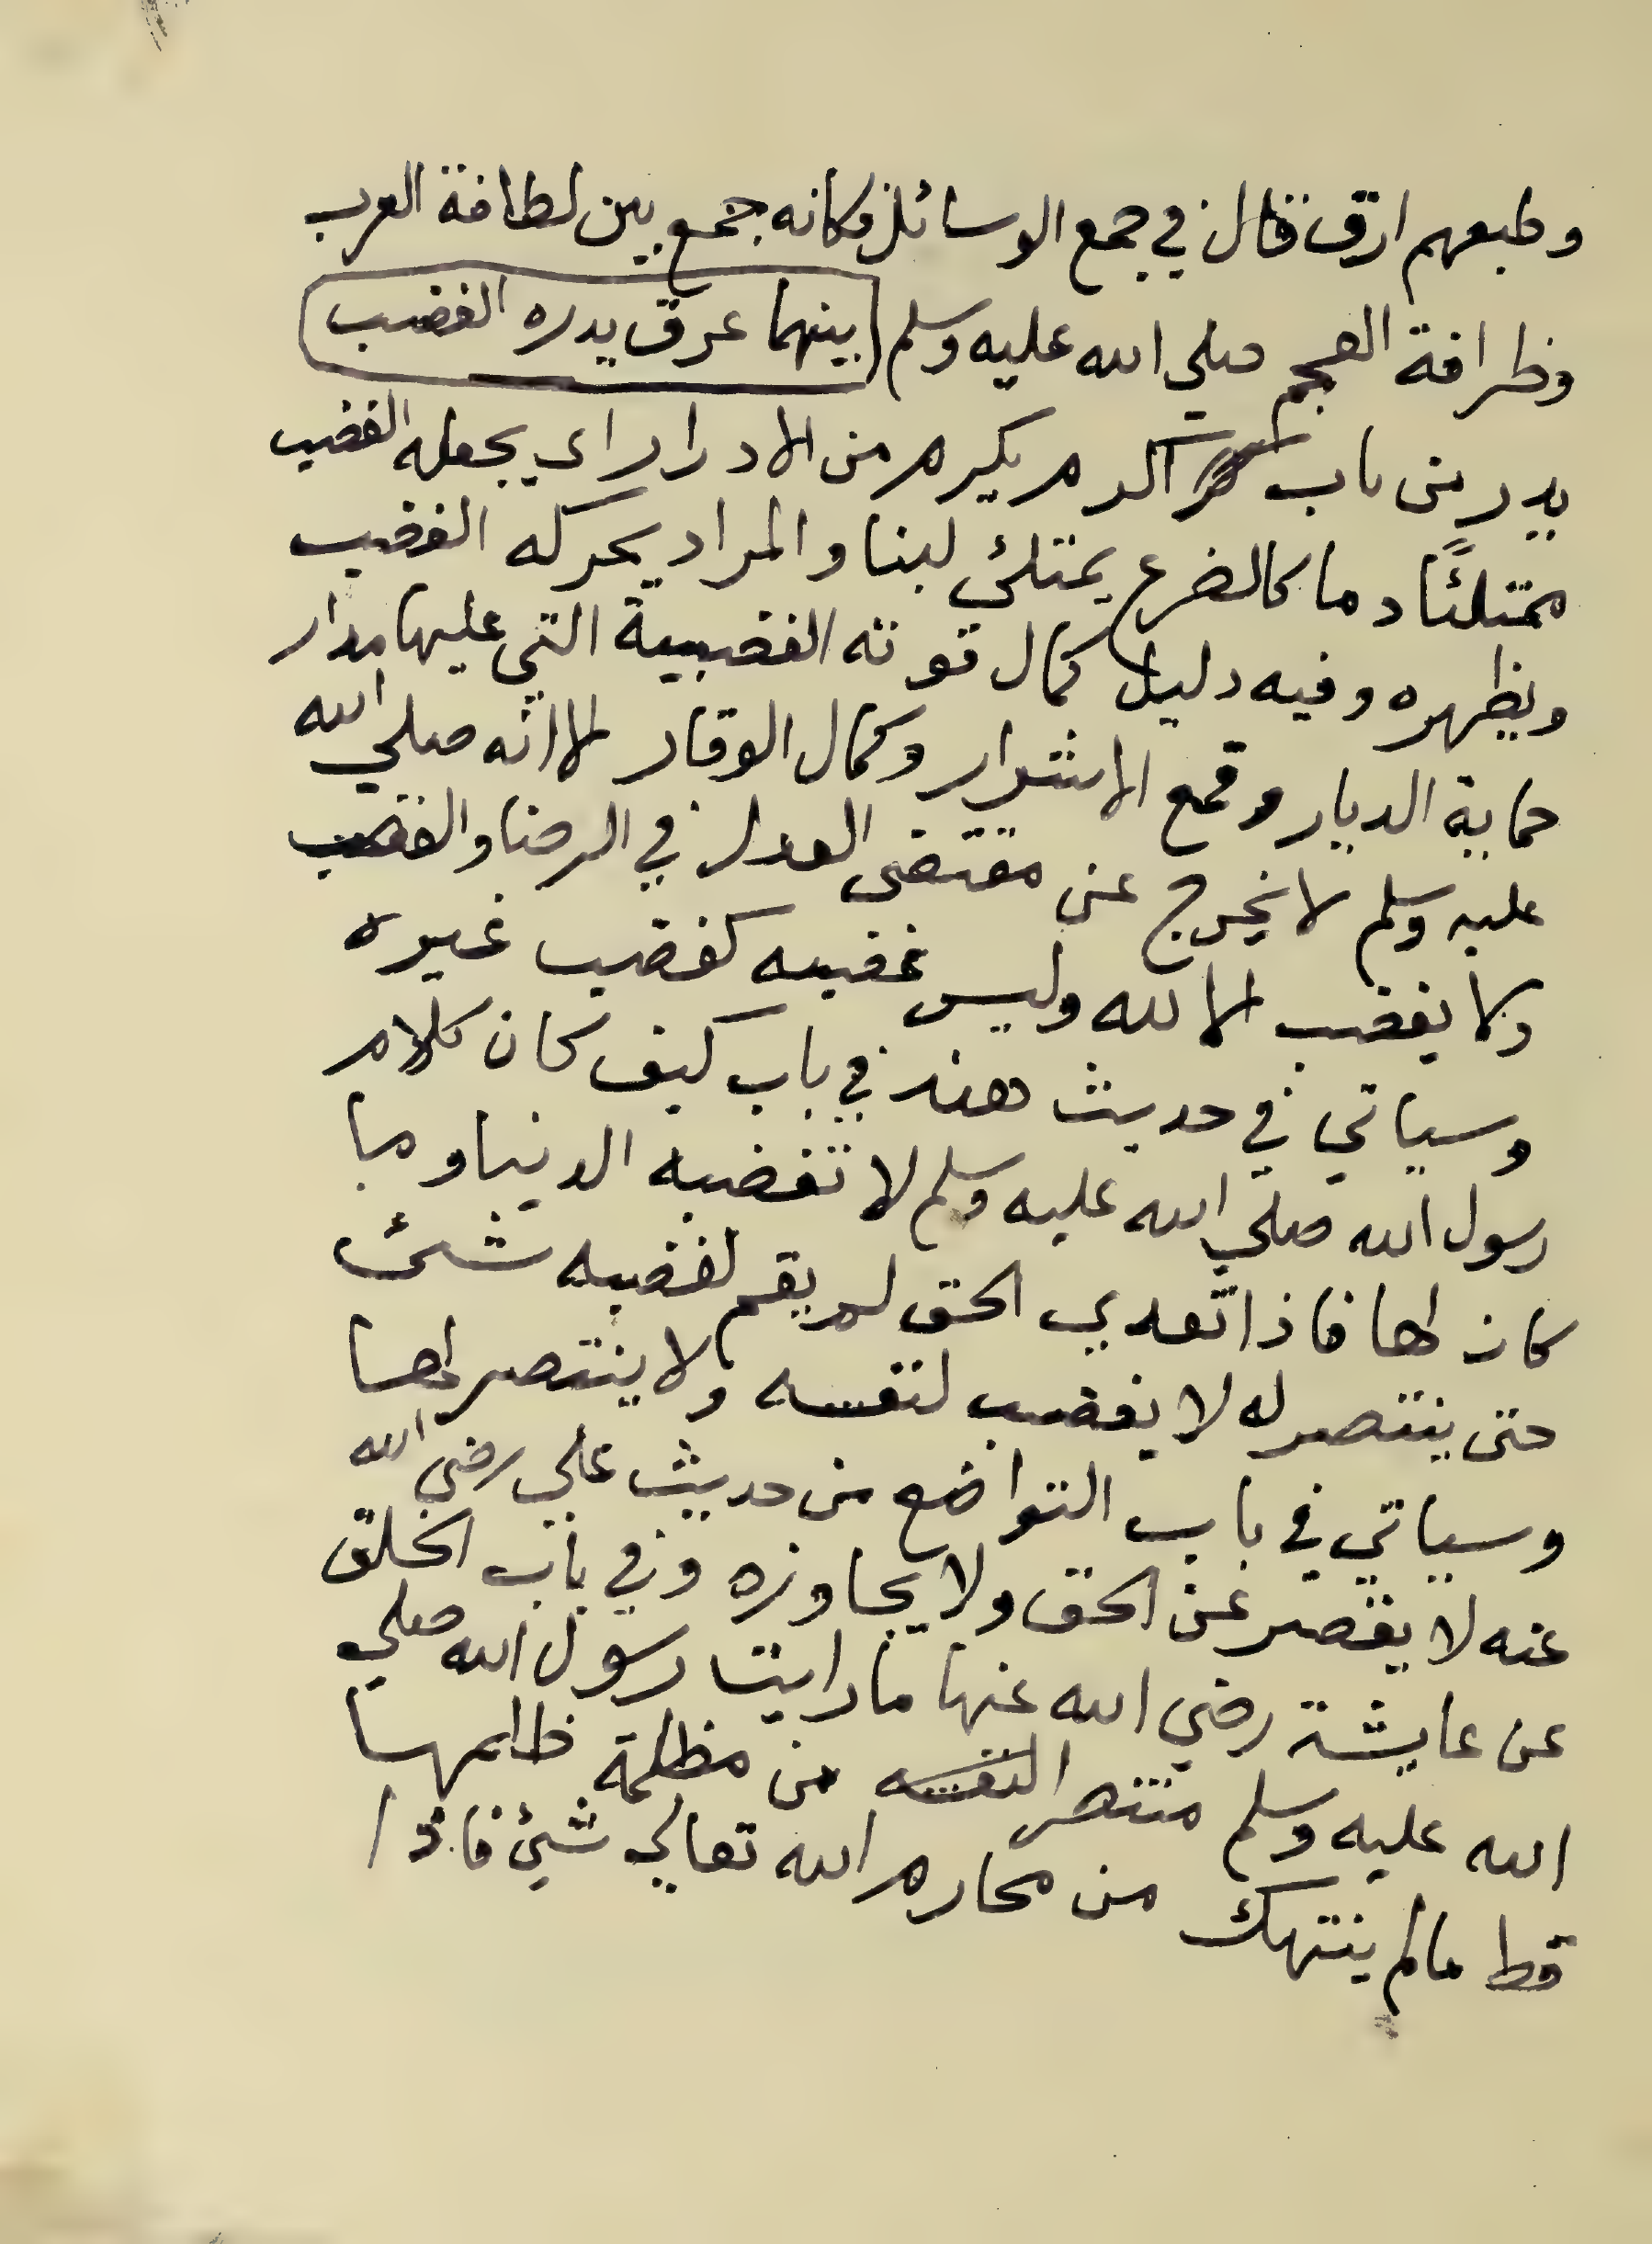 وطبعهم ارق قال في جمع الوسائل وكانه جمع بين لطافة العرب
وظرافة العجم صلي الله عليه وسلم بينهما عرق يدره الغضب
يدر من باب اكرم يكرم من الادرار اي يجعله الغضب
ممتلئًا دما كالضرع يمتلئ لبنا والمراد يحركه الغضب
ويظهره وفيه دليل كمال قوته الغضبية التي عليها مدار
حماية الديار وقمع الاشرار وكمال الوقار الا انه صلي الله
عليه وسلم لا يخرج عن مقتضى العدل في الرضا والغضب
ولا يغضب الا لله وليس غضبه كغضب غيره
وسياتي في حديث هند في باب كيف كان كلام
رسول الله صلي الله عليه وسلم لا تغضبه الدنيا وما
كان لها فاذا تعدي الحق لم يقم لغضبه شئ
حتى ينتصر له لا يغضب لنفسه ولا ينتصر لها
وسياتي في باب التواضع من حديث علي رضي الله
عنه لا يقصر عن الحق ولا يجاوزه وفي باب الخلق
عن عايشة رضي الله عنها ما رايت رسول الله صلي
الله عليه وسلم منتصرا لنفسه من مظلمة ظلمها
قط مالم ينتهك من محارم الله تعالي شئ فاذا